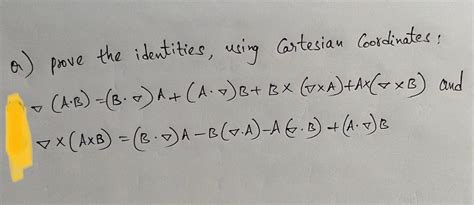 Q) prove the identities, using Cartesian Coordinates:
▽ (A·B) = (B·▽)A + (A·▽)B + B×(▽×A)+A×(▽×B) and
▽×(A×B) = (B·▽)A − B(▽·A) − A(▽·B) + (A·▽)B